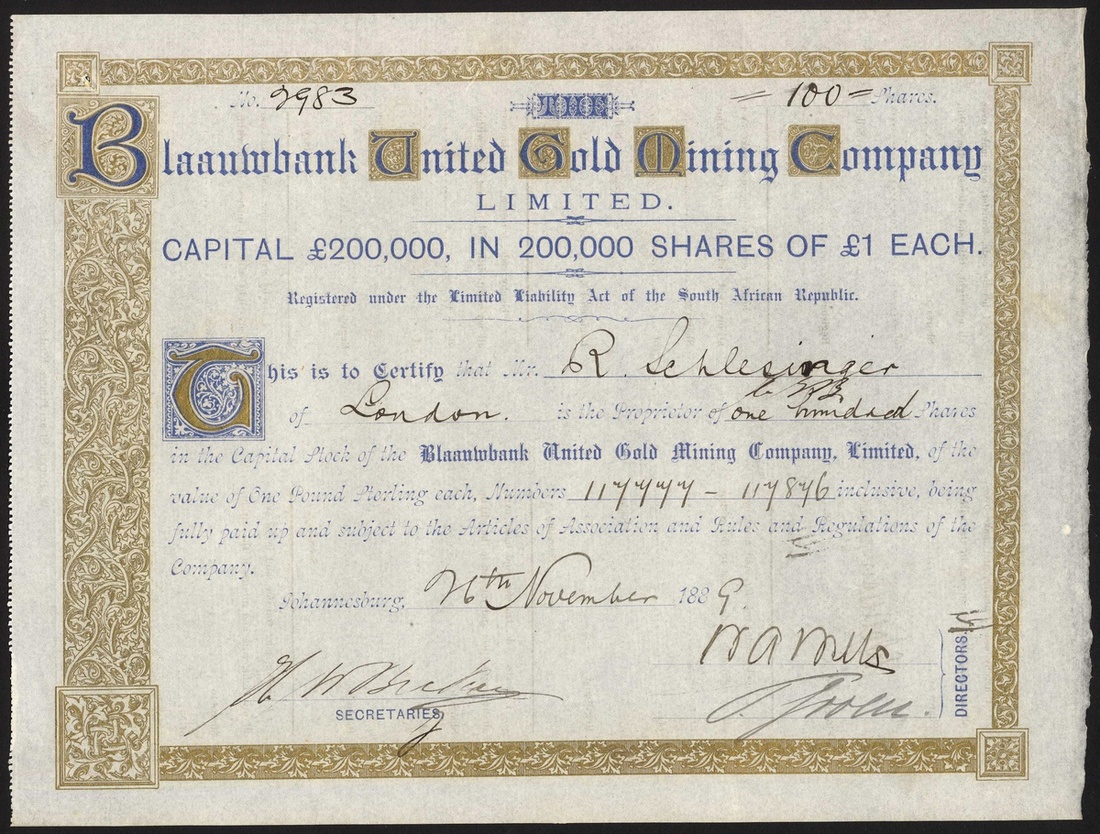 No. 2983 THE = 100 = Shares.
Blaauwbank United Gold Mining Company
LIMITED.
CAPITAL £200,000, IN 200,000 SHARES OF £1 EACH.
Registered under the Limited Liability Act of the South African Republic.
This is to Certify that Mr. R. Schlesinger
of London. is the Proprietor of one hundred Shares
in the Capital Stock of the Blaauwbank United Gold Mining Company, Limited, of the
value of One Pound Sterling each, Numbers 117777 - 117876 inclusive, being
fully paid up and subject to the Articles of Association and Rules and Regulations of the
Company.
Johannesburg, 26th November 1889.
SECRETARIES
DIRECTORS.